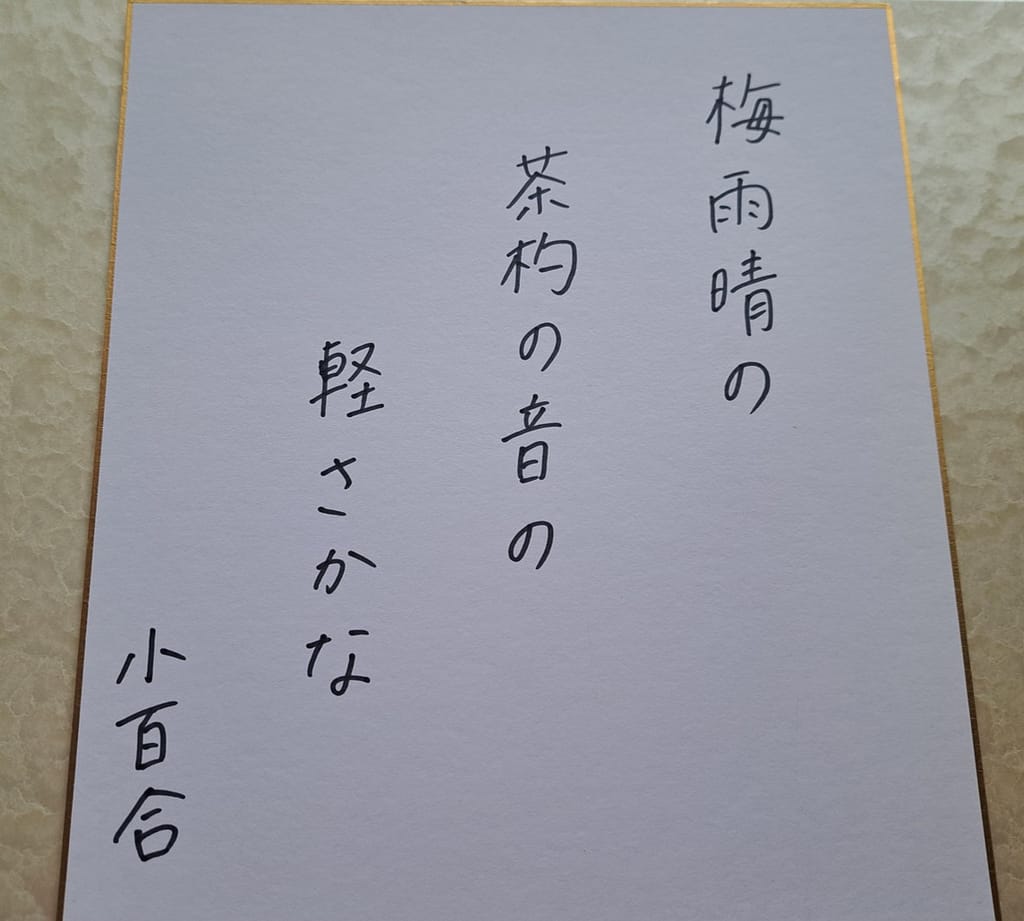 梅雨晴の
茶杓の音の
軽さかな
小百合